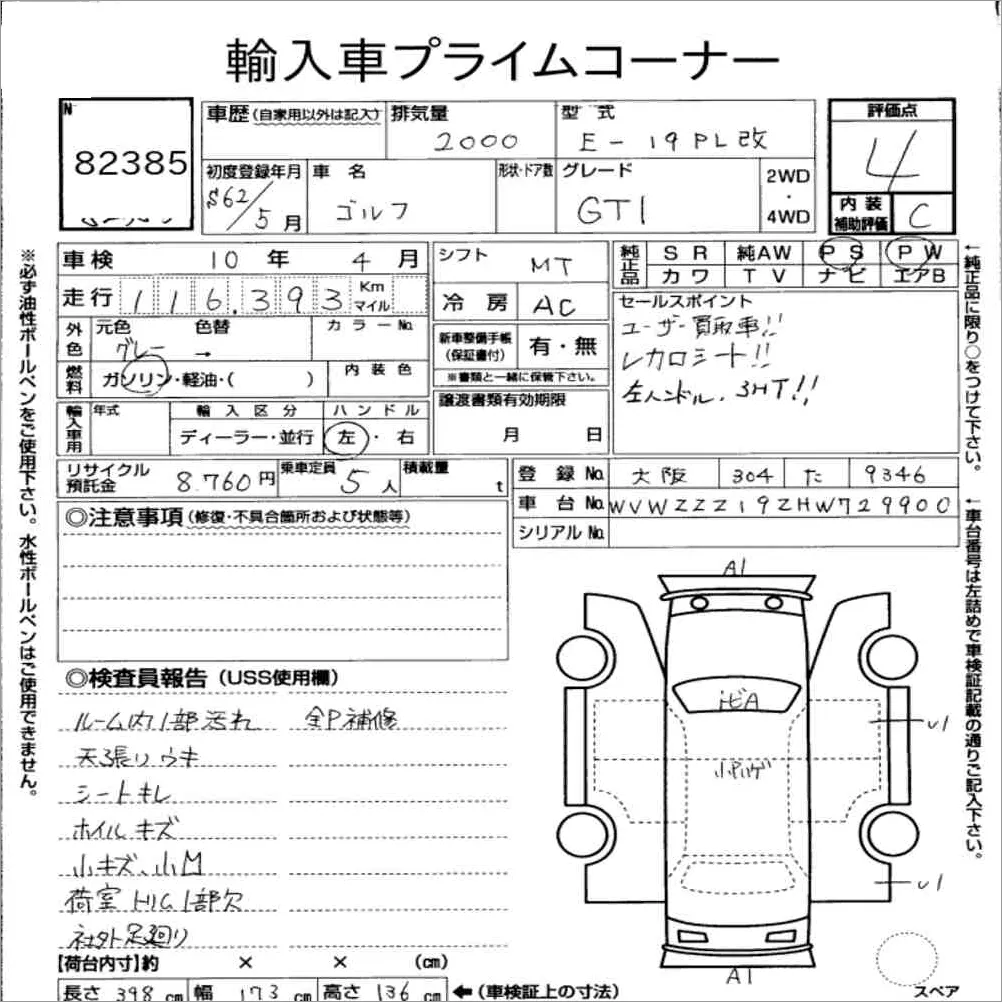 輸入車プライムコーナー
N
82385
車歴(自家用以外は記入) 排気量 2000 型式 E-19PL改
評価点 4
初度登録年月 S62/5月 車名 ゴルフ 形状・ドア数 グレード GTI 2WD・4WD
内装補助評価 C
車検 10年 4月 シフト MT
純正品 SR 純AW PS PW
カワ TV ナビ エアB
走行 116,393 Km マイル 冷房 AC
セールスポイント
ユーザー買取車!!
レカロシート!!
左ハンドル、3HT!!
外色 元色 グレー 色替 → カラーNo.
新車整備手帳(保証書付) 有・無
※書類と一緒に保管下さい。
燃料 ガソリン・軽油・( ) 内装色
譲渡書類有効期限
月 日
輸入車用 年式 輸入区分 ハンドル
ディーラー・並行 左・右
リサイクル預託金 8.760円 乗車定員 5人 積載量 t
登録No. 大阪 304 た 9346
車台No. WVWZZZ19ZHW729900
シリアルNo.
◎注意事項(修復・不具合箇所および状態等)
◎検査員報告(USS使用欄)
ルーム内1部汚れ 全P補修
天張りウキ
シートキレ
ホイルキズ
小キズ、小M
荷室トリム1部欠
社外足廻り
【荷台内寸】約 × × (cm)
長さ 398 cm 幅 173 cm 高さ 136 cm ←(車検証上の寸法)
A1
ヒビA
小Pハゲ
U1
U1
A1
スペア
※必ず油性ボールペンをご使用下さい。水性ボールペンはご使用できません。
←純正品に限り○をつけて下さい。
←車台番号は左詰めで車検証記載の通りご記入下さい。